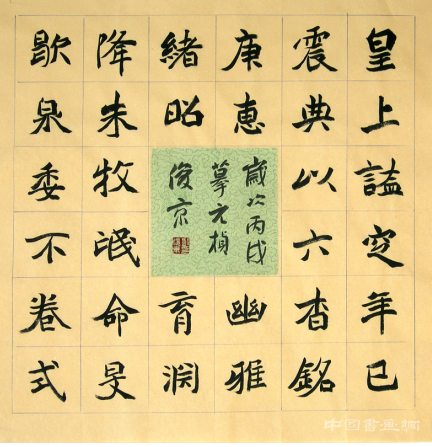 皇上謚定年已
震典以六杳銘
庚惠幽雅
緒昭育渊
降未牧氓命旻
泉委不卷式
歲次丙戌
摹元楨
俊京
中国書画網